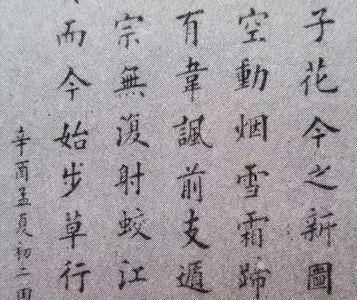 子花今之新圖
空動烟雪霜蹄
有韋諷前支遁
宗無復射蛟江
而今始步草行
辛酉孟夏初二